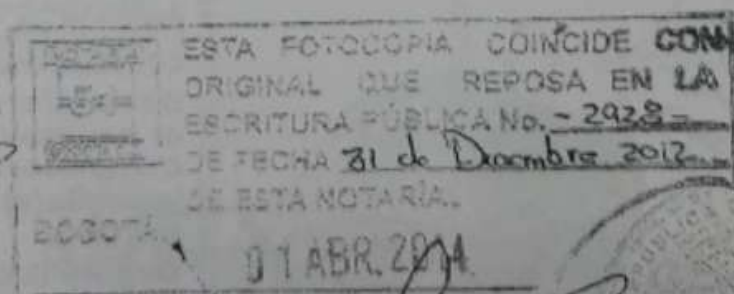 ESTA FOTOCOPIA COINCIDE CON
ORIGINAL QUE REPOSA EN LA
ESCRITURA PÚBLICA No. - 2928 -
DE FECHA 31 de Diciembre 2012
DE ESTA NOTARÍA.
BOGOTÁ,
01 ABR. 2014
PÚBLICA